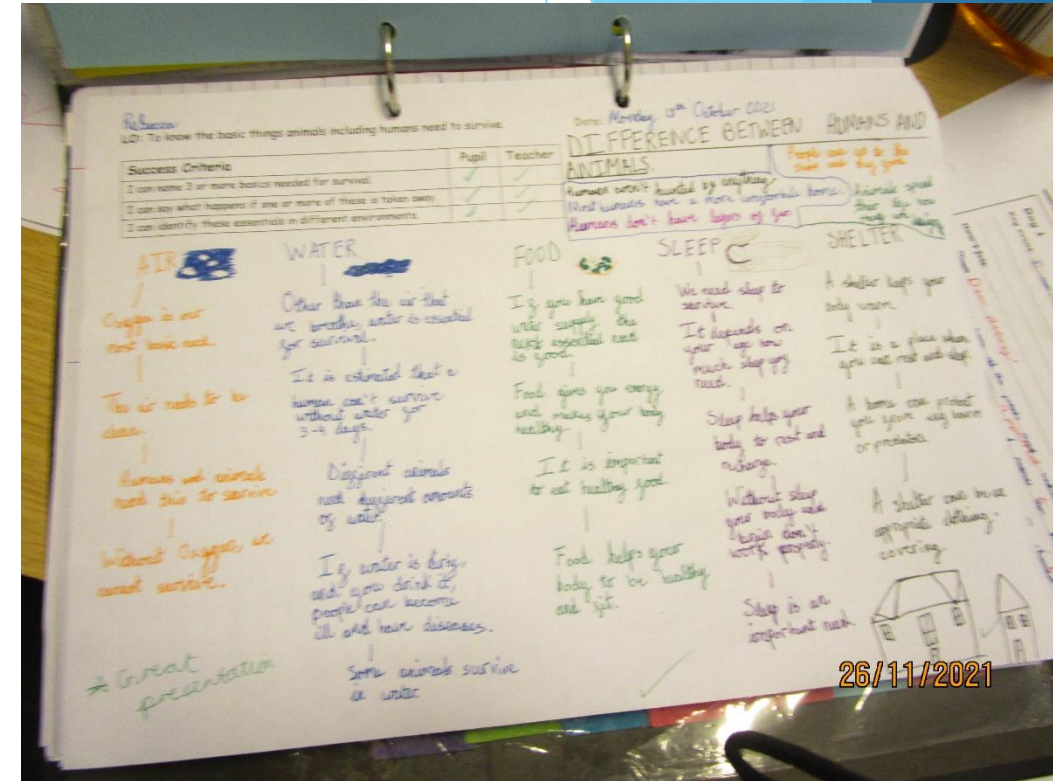 Rebecca
LO: To know the basic things animals including humans need to survive.
Success Criteria
Pupil
Teacher
I can name 3 or more basics needed for survival.
I can say what happens if one or more of these is taken away.
I can identify these essentials in different environments.
Date: Monday October 2021
DIFFERENCE BETWEEN HUMANS AND
ANIMALS.
Humans aren't hunted by anything
Most humans have a more comfortable home.
Humans don't have layers of fur
AIR
Oxygen is our
most basic need.
The air needs to be
clean.
Humans and animals
need this to survive
Without Oxygen, we
cannot survive.
WATER
Other than the air that
we breathe, water is essential
for survival.
It is estimated that a
human can't survive
without water for
3-4 days.
Different animals
need different amounts
of water
If water is dirty
and you drink it,
people can become
ill and have diseases.
Some animals survive
in water
FOOD
If you have good
water supply the
next essential need
is food.
Food gives you energy
and makes your body
healthy.
It is important
to eat healthy food.
Food helps your
body to be healthy
and fit.
SLEEP
We need sleep to
survive.
It depends on
your age how
much sleep you
need.
Sleep helps your
body to rest and
recharge.
Without sleep
your body and
brain don't
work properly.
Sleep is an
important need
SHELTER
A shelter keeps your
body warm.
It is a place where
you can rest and sleep
A home can protect
you from any harm
or predators.
A shelter can be an
appropriate clothing.
covering
A Great
presentation
26/11/2021